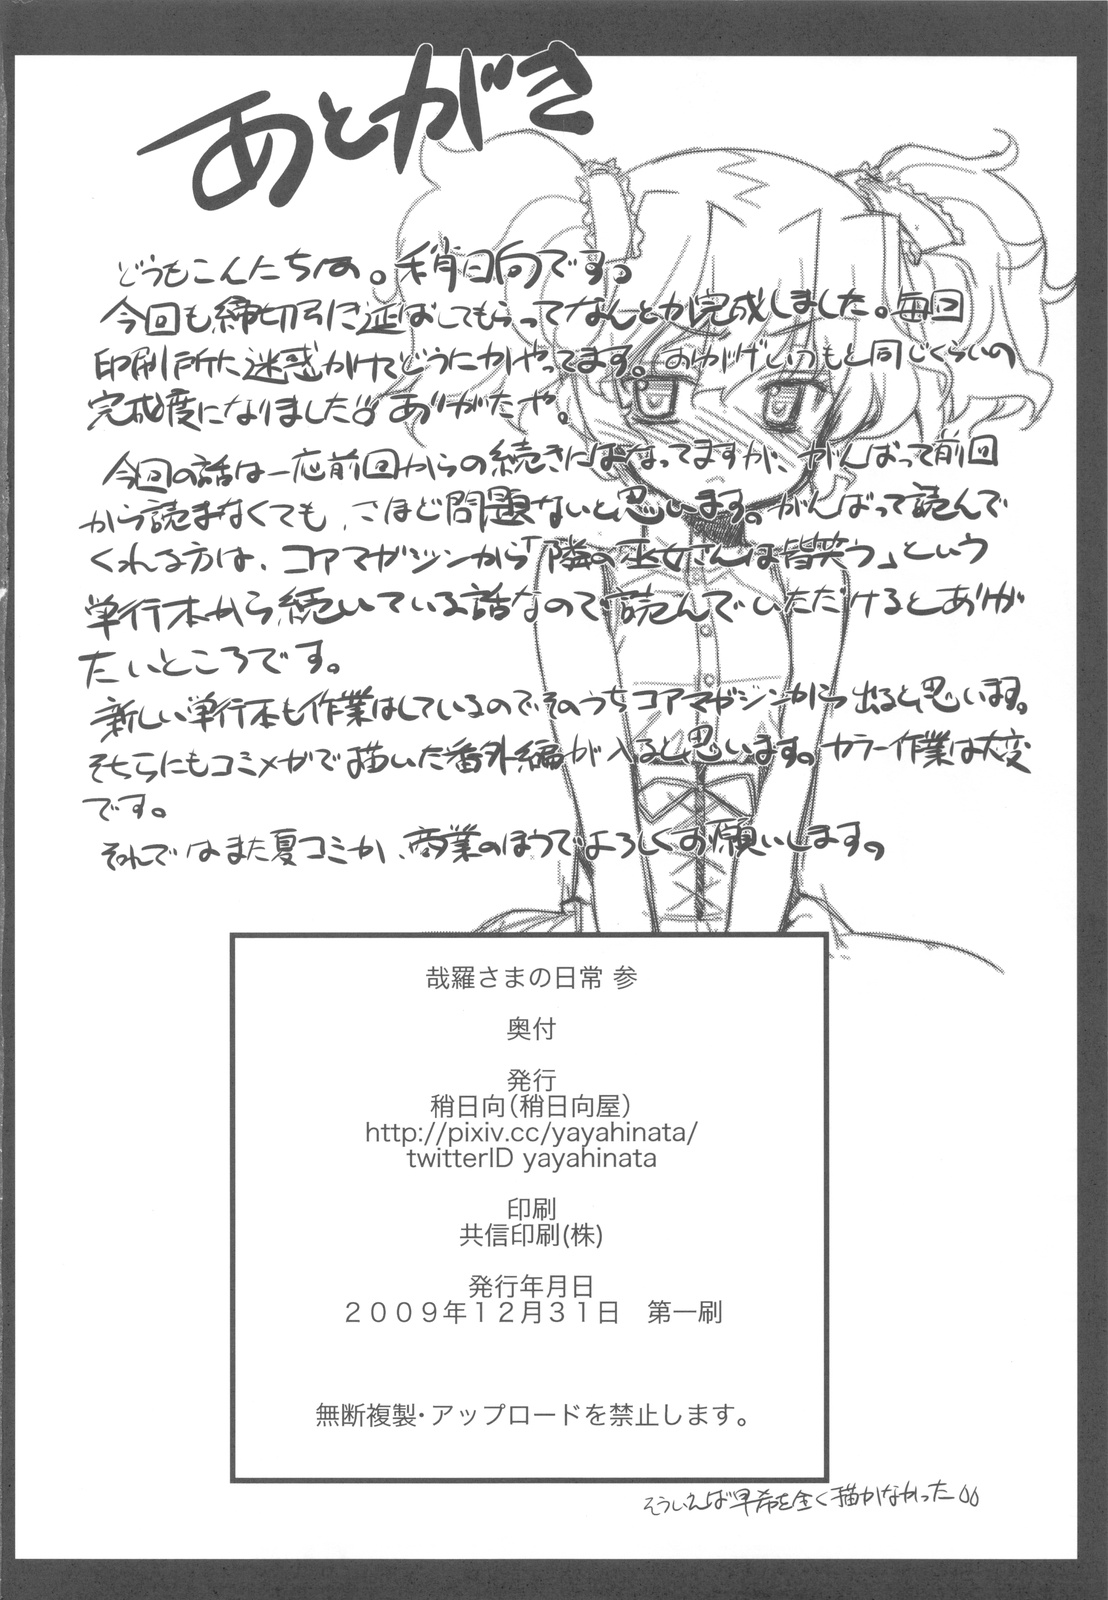 あとがき
どうもこんにちわ。稍日向です。
今回も締切引き延ばしてもらってなんとか完成しました。毎回
印刷所に迷惑かけてどうにかやってます。おかげでいつもと同じくらいの
完成度になりました。ありがたや。
今回の話は一応前回からの続きにはなってますが、がんばって前回
から読まなくても、さほど問題ないと思います。がんばって読んで
くれる方は、コアマガジンから「隣の巫女さんは皆笑う」という
単行本から続いている話なので読んでいただけるとありが
たいところです。
新しい単行本も作業はしているのでそのうちコアマガジンから出ると思います。
そちらにもコミメガで描いた番外編が入ると思います。カラー作業は大変
です。
それではまた夏コミか、商業のほうでよろしくお願いします。
哉羅さまの日常 参
奥付
発行
稍日向(稍日向屋)
http://pixiv.cc/yayahinata/
twitterID yayahinata
印刷
共信印刷(株)
発行年月日
２００９年１２月３１日　第一刷
無断複製・アップロードを禁止します。
そういえば早希を全く描かなかった